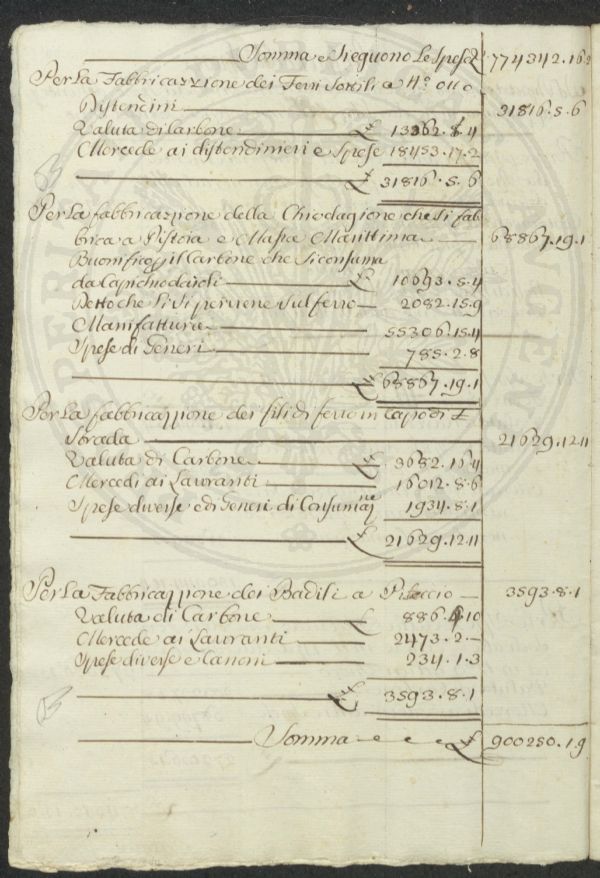 Somma e Sieguono Le Spese £ 774342.16.2
Per La Fabbricazzione dei Ferri Sottili a N.º otto
Distendini 31816.5.6
Valuta di Carbone £ 13362.8.4
Mercede ai distendinieri e Spese 18453.17.2
£ 31816.5.6
Per La fabbricazione della Chiodagione che si fab
brica a Pistoia e Massa Marittima 68867.19.1
Buonifico il Carbone che si consuma
da Capi chiodaioli £ 10693.5.4
Detto che si dipervene sul ferro 2082.15.9
Manifatture 55306.15.4
Spese di Generi 785.2.8
£ 68867.19.1
Per La fabbricazzione dei fili di ferro in Capo di
Strada 21629.12.11
Valuta di Carbone £ 3682.16.4
Mercedi ai Lauranti 16012.8.6
Spese diverse e di Generi di Consumaz.ne 1934.8.1
£ 21629.12.11
Per La Fabbricazzione dei Badili a Piteccio 3593.8.1
Valuta di Carbone £ 886.4.10
Mercede ai Lauranti 2473.2.–
Spese diverse e Canoni 234.1.3
£ 3593.8.1
Somma £ 900250.1.9